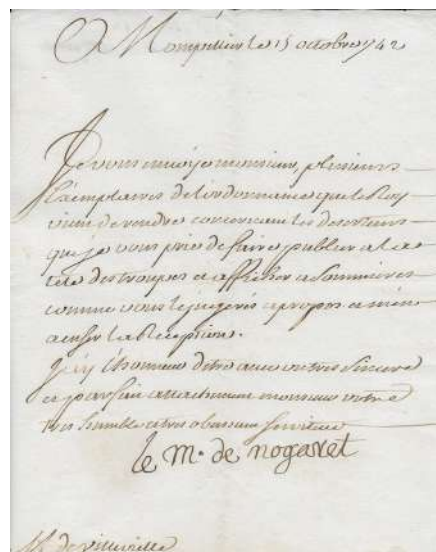 A Montpellier le 15 octobre 1742
Je vous envoye monsieur, plusieurs
Exemplaires de l'ordonnance que le Roy
vient de rendre concernant les deserteurs
que je vous prie de faire publier a la
tete des troupes et afficher a Sommieres
comme vous le jugerés apropos et m'en
accuser la Reception.
J'ay l'honneur d'etre avec un tres sincere
et parfait attachement monsieur votre
tres humble et tres obeissant serviteur
le M. de nogaret
M. de villevieille